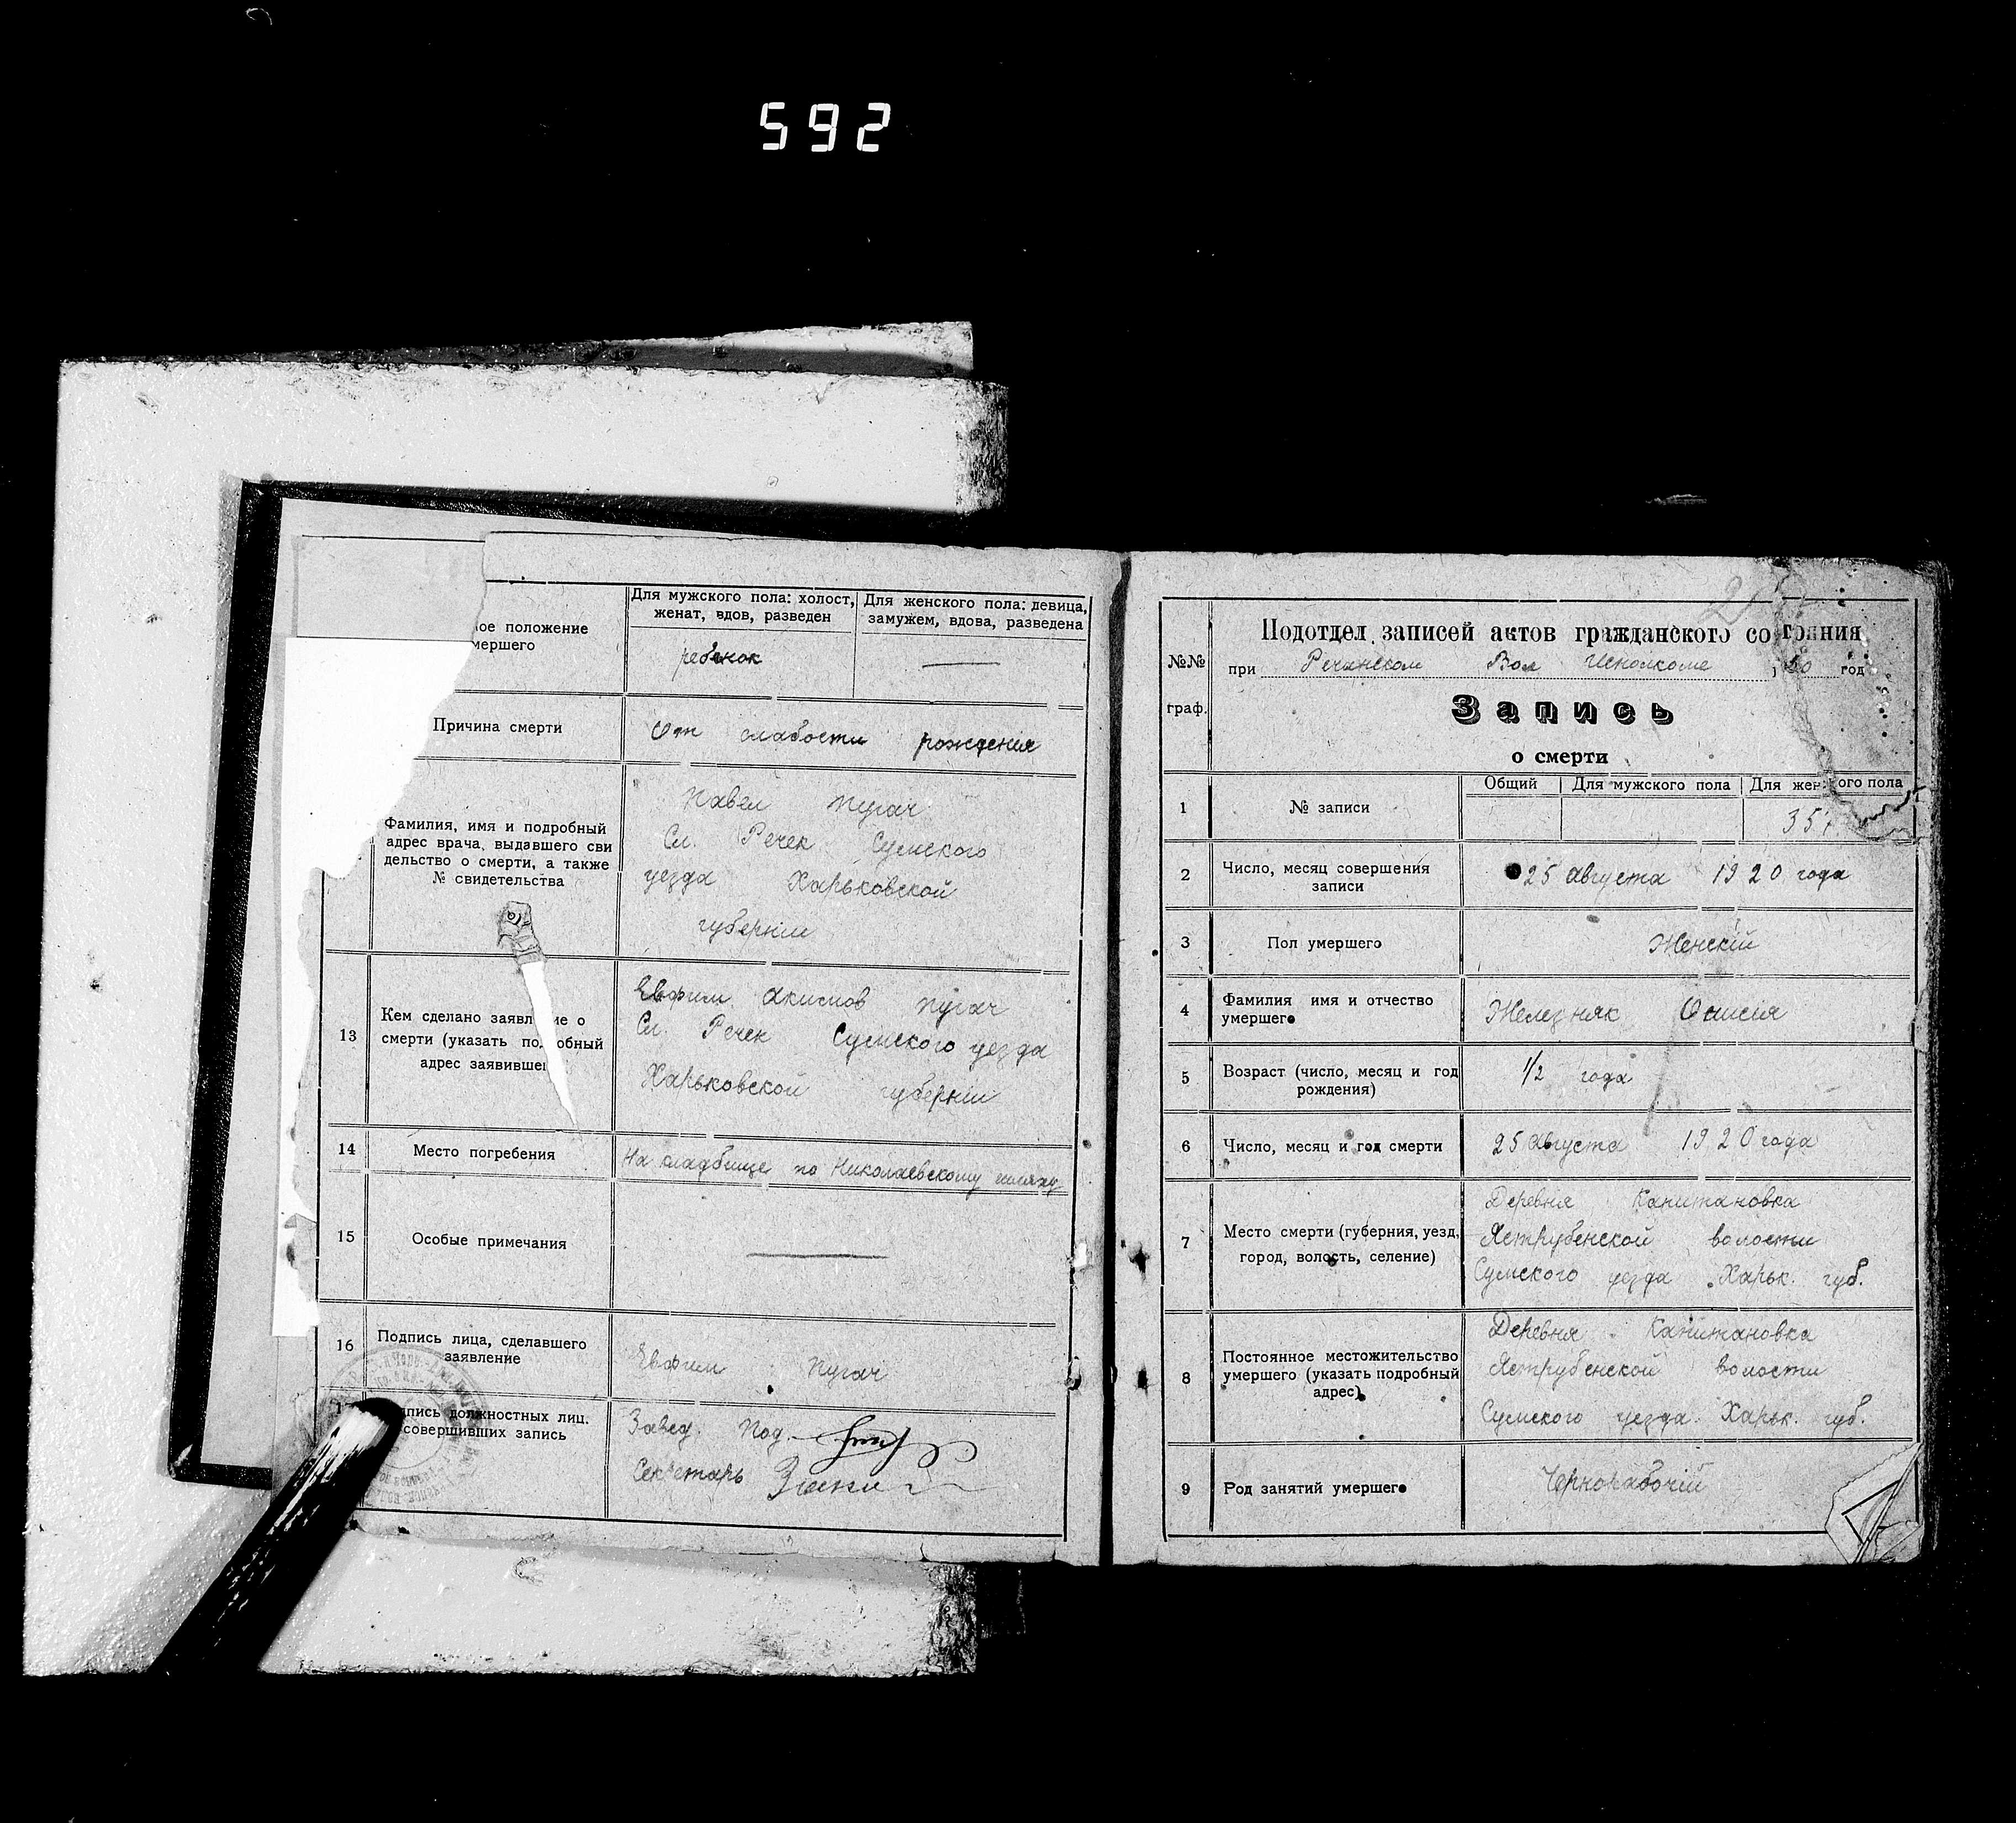 592
ое положение
мершего
Для мужского пола: холост,
женат, вдов, разведен
Для женского пола: девица,
замужем, вдова, разведена
ребенок
Причина смерти
От слабости рождения
Фамилия, имя и подробный
адрес врача, выдавшего сви
дельство о смерти, а также
№ свидетельства
Павел Пугач
Сл. Речек Сумского
уезда Харьковской
губерніи
13
Кем сделано заявл ие о
смерти (указать по обный
адрес заявивше
Евфим Акимов Пугач
Сл. Речек Сумского уезда
Харьковской губерніи
14
Место погребения
На кладбище по Николаевскому шляху
15
Особые примечания
16
Подпись лица, сделавшего
заявление
Евфим Пугач
дпись должностных лиц.
совершивших запись
Завед. Под.
Секретарь
№№
граф.
Подотдел записей актов гражданского состояния
при Речанском Вол Исполкоме 20 год
Запись
о смерти
1
№ записи
Общий
Для мужского пола
Для женского пола
35
2
Число, месяц совершения
записи
25 августа 1920 года
3
Пол умершего
Женскій
4
Фамилия имя и отчество
умершего
Железняк Онисія
5
Возраст (число, месяц и год
рождения)
1/2 года
6
Число, месяц и год смерти
25 августа 1920 года
7
Место смерти (губерния, уезд,
город, волость, селение)
Деревня Капитановка
Яструбенской волости
Сумского уезда Харьк. губ.
8
Постоянное местожительство
умершего (указать подробный
адрес)
Деревня Капитановка
Яструбенской волости
Сумского уезда Харьк. губ.
9
Род занятий умершего
Чернорабочій